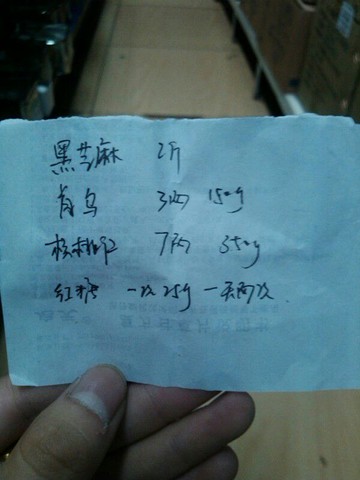 黑芝麻 2斤
肖乌 3两 150g
核桃仁 7两 350g
红糖 一次25g 一天两次.